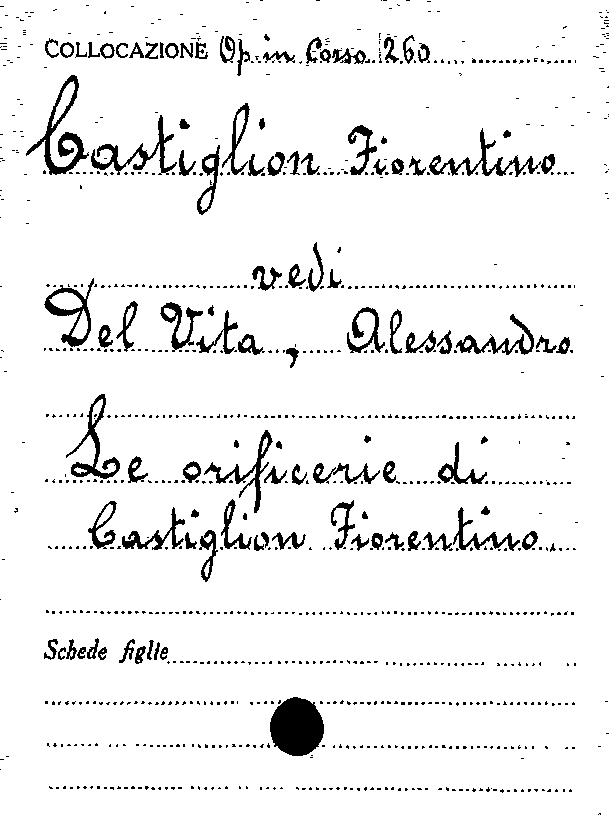 COLLOCAZIONE Op. in Corso 260
Castiglion Fiorentino
vedi
Del Vita, Alessandro
Le orificerie di
Castiglion Fiorentino.
Schede figlie